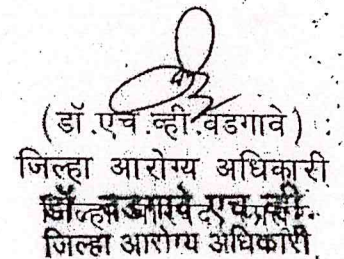 (डॉ.एच.व्ही.वडगावे)
जिल्हा आरोग्य अधिकारी
डॉ. वडगावे एच. व्ही.
जिल्हा आरोग्य अधिकारी